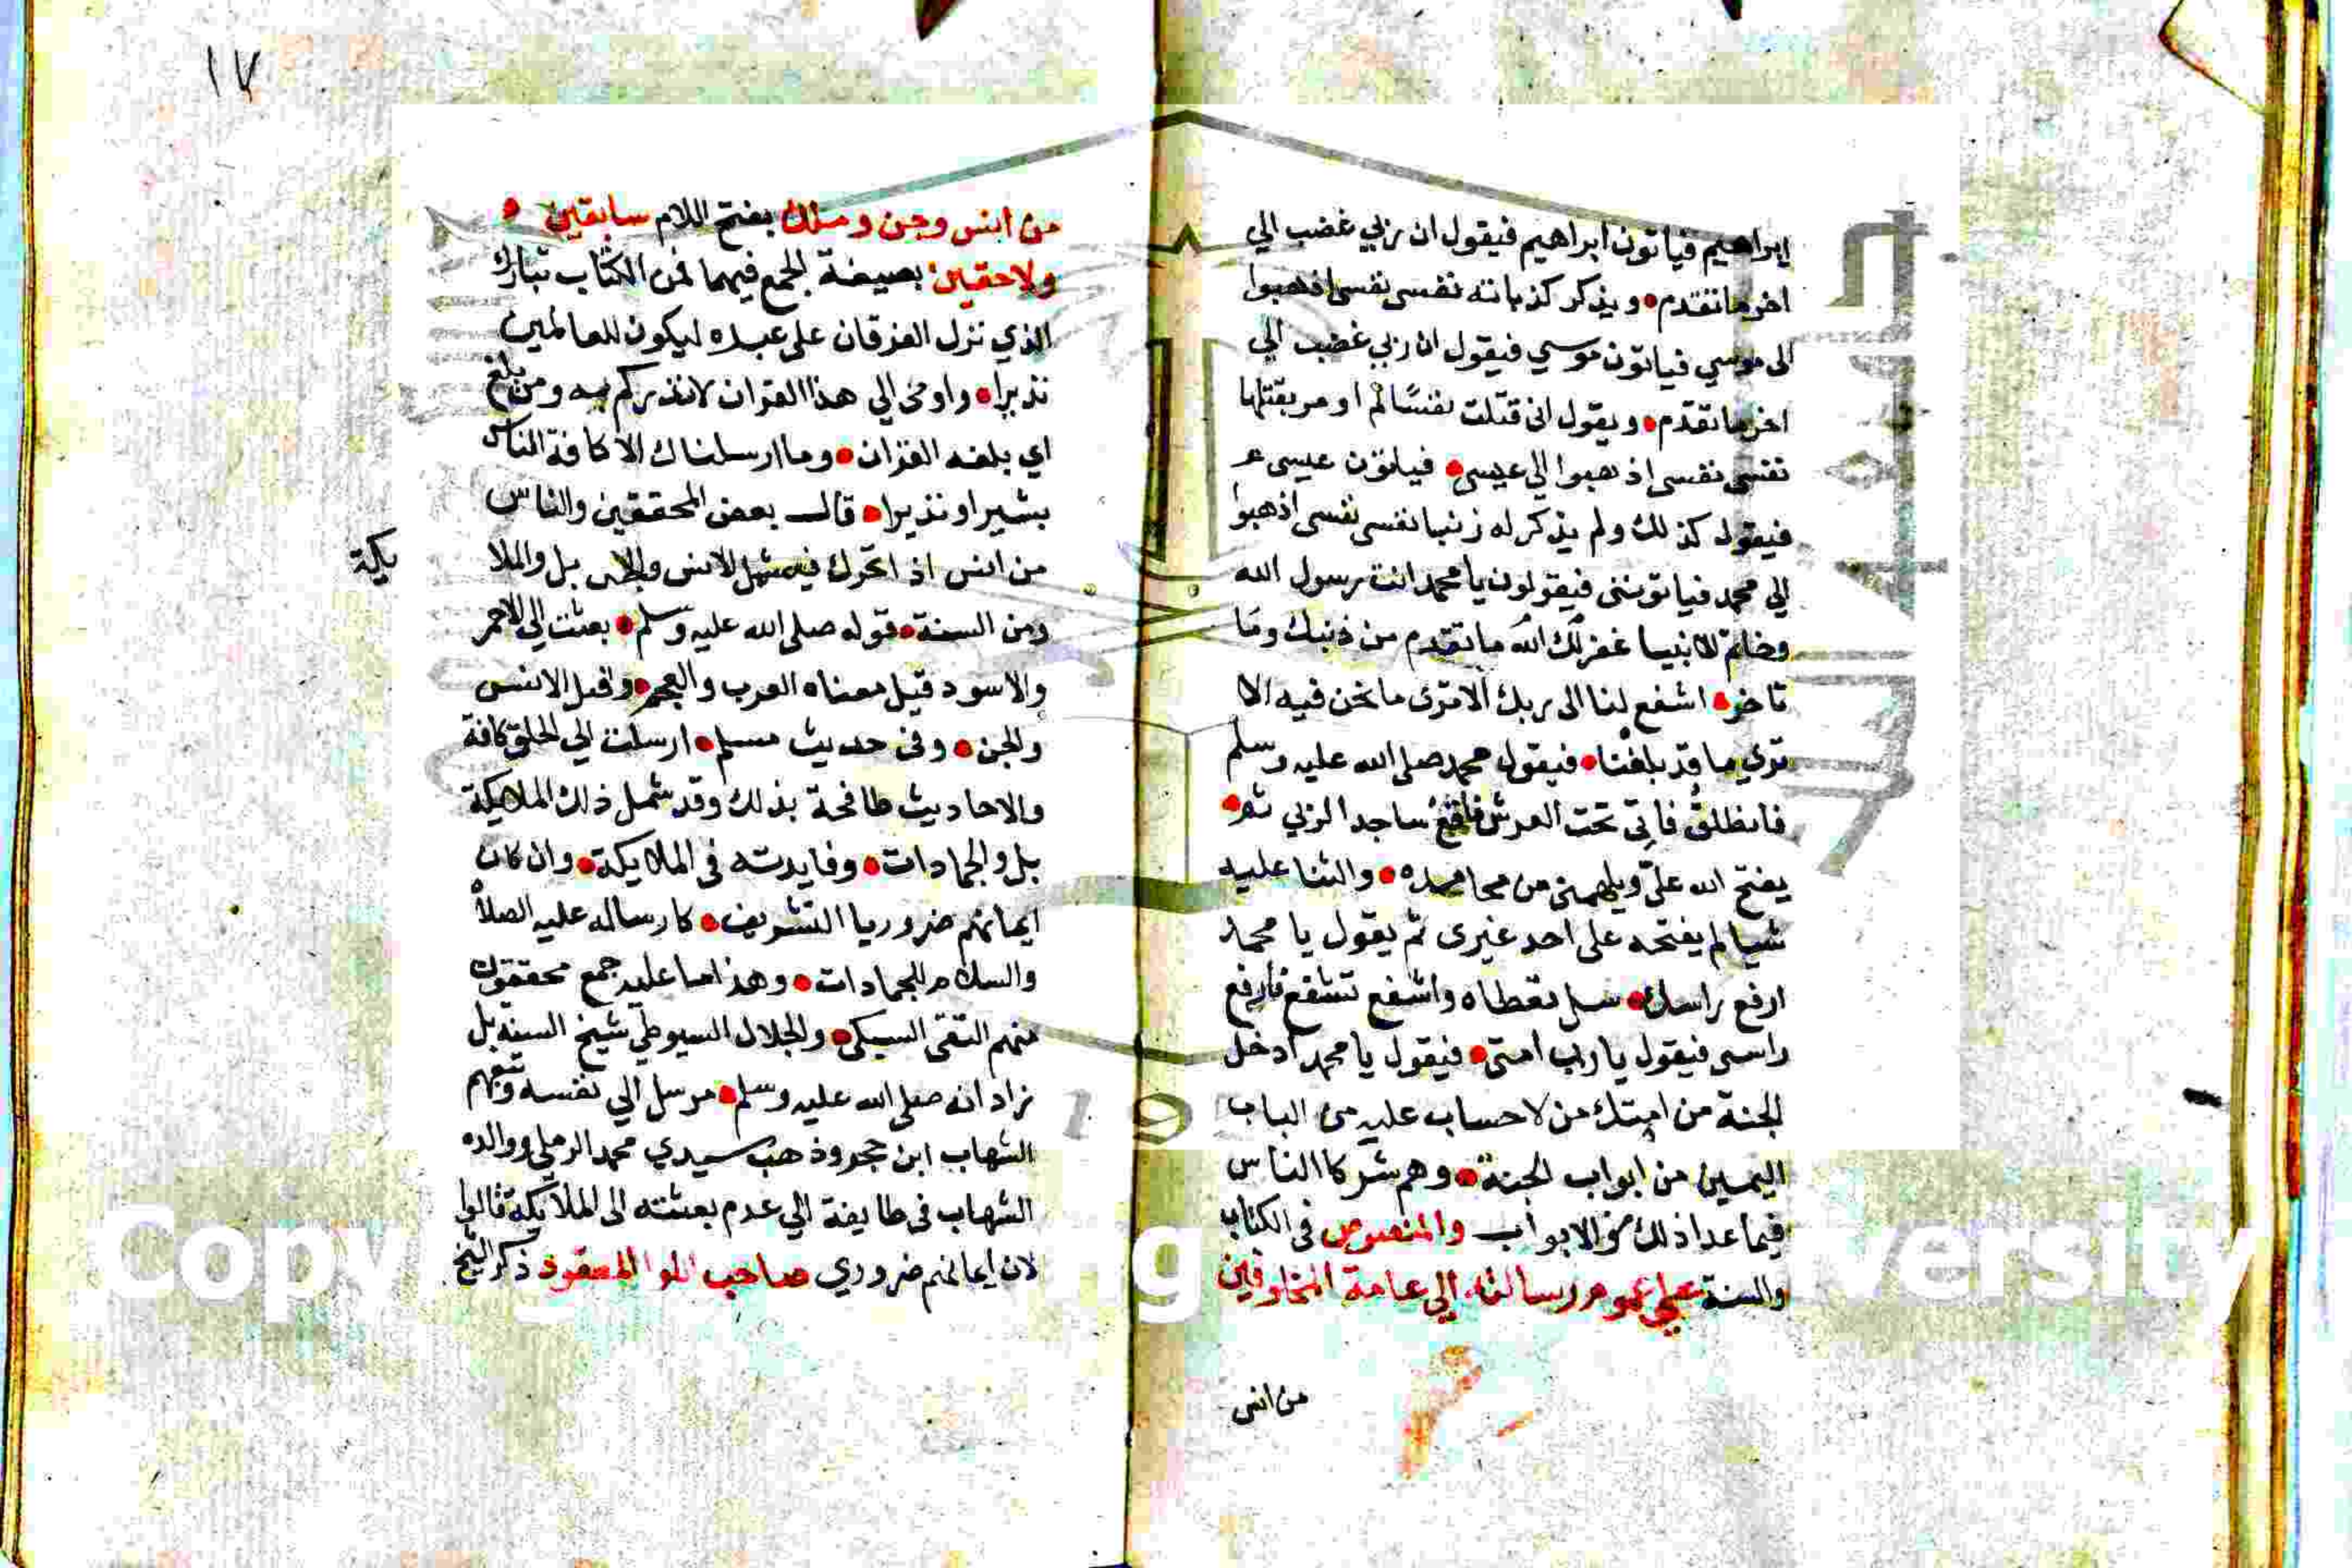 ابراهيم فياتون ابراهيم فيقول ان ربي غضب الي
اخر ما تقدم • ويذكر كذباته نفسي نفسي اذهبوا
الى موسي فياتون موسي فيقول ان ربي غضب الي
اخر ما تقدم • ويقول اني قتلت نفسًا لم اومر بقتلها
نفسي نفسي اذهبوا الي عيسي • فياتون عيسى
فيقول كذلك ولم يذكر له ذنبا نفسي نفسي اذهبوا
الي محمد فياتونني فيقولون يا محمد انت رسول الله
وخاتم الانبيا غفر لك الله ما تقدم من ذنبك وما
تاخر • اشفع لنا الى ربك الا ترى ما نحن فيه الا
تري ما قد بلغنا • فيقول محمد صلى الله عليه وسلم
فانطلق فاتي تحت العرش فاقع ساجدا لربي ثم •
يفتح الله عليّ ويلهمني من محامده • والثنا عليه
شيا لم يفتحه على احد غيرى ثم يقول يا محمد
ارفع راسك • سل تعطاه واشفع تشفع فارفع
راسي فيقول يا رب امتي • فيقول يا محمد ادخل
الجنة من امتك من لا حساب عليه من الباب
اليمين من ابواب الجنة • وهم شركا الناس
فيما عدا ذلك من الابواب والمنصوص في الكتاب
والسنة علي عموم رسالته الي عامة المخلوقين
من انس
١٧
من انس وجن وملك بفتح اللام سابقين •
ولاحقين بصيغة الجمع فيهما فمن الكتاب تبارك
الذي نزل الفرقان على عبده ليكون للعالمين
نذيرا • واوحى الي هذا القران لانذركم به ومن بلغ
اي بلغه القران • وما ارسلناك الا كافة الناس
بشيرا ونذيرا • قال بعض المحققين والناس
من انس اذا تحرك فيشمل الانس والجن بل والملا
يكة
ومن السنة • قوله صلى الله عليه وسلم • بعثت الي الاحمر
والاسود قيل معناه العرب والعجم • وقيل الانس
والجن • وفي حديث مسلم • ارسلت الي الخلق كافة
والاحاديث طافحة بذلك وقد شمل ذلك الملايكة
بل والجمادات • وفايدته في الملايكة • وان كان
ايمانهم ضروريا التشريف • كارساله عليه الصلاة
والسلام للجمادات • وهذا ما عليه جمع محققون
منهم التقى السبكي • والجلال السيوطي شيخ السنه بل
زاد انه صلى الله عليه وسلم • مرسل الي نفسه وتبعهم
الشهاب ابن حجر وذهب سيدي محمد الرملي ووالده
الشهاب في طايفة الي عدم بعثته الى الملايكة قالوا
لان ايمانهم ضروري صاحب اللوا المعقود ذكر الشيخ